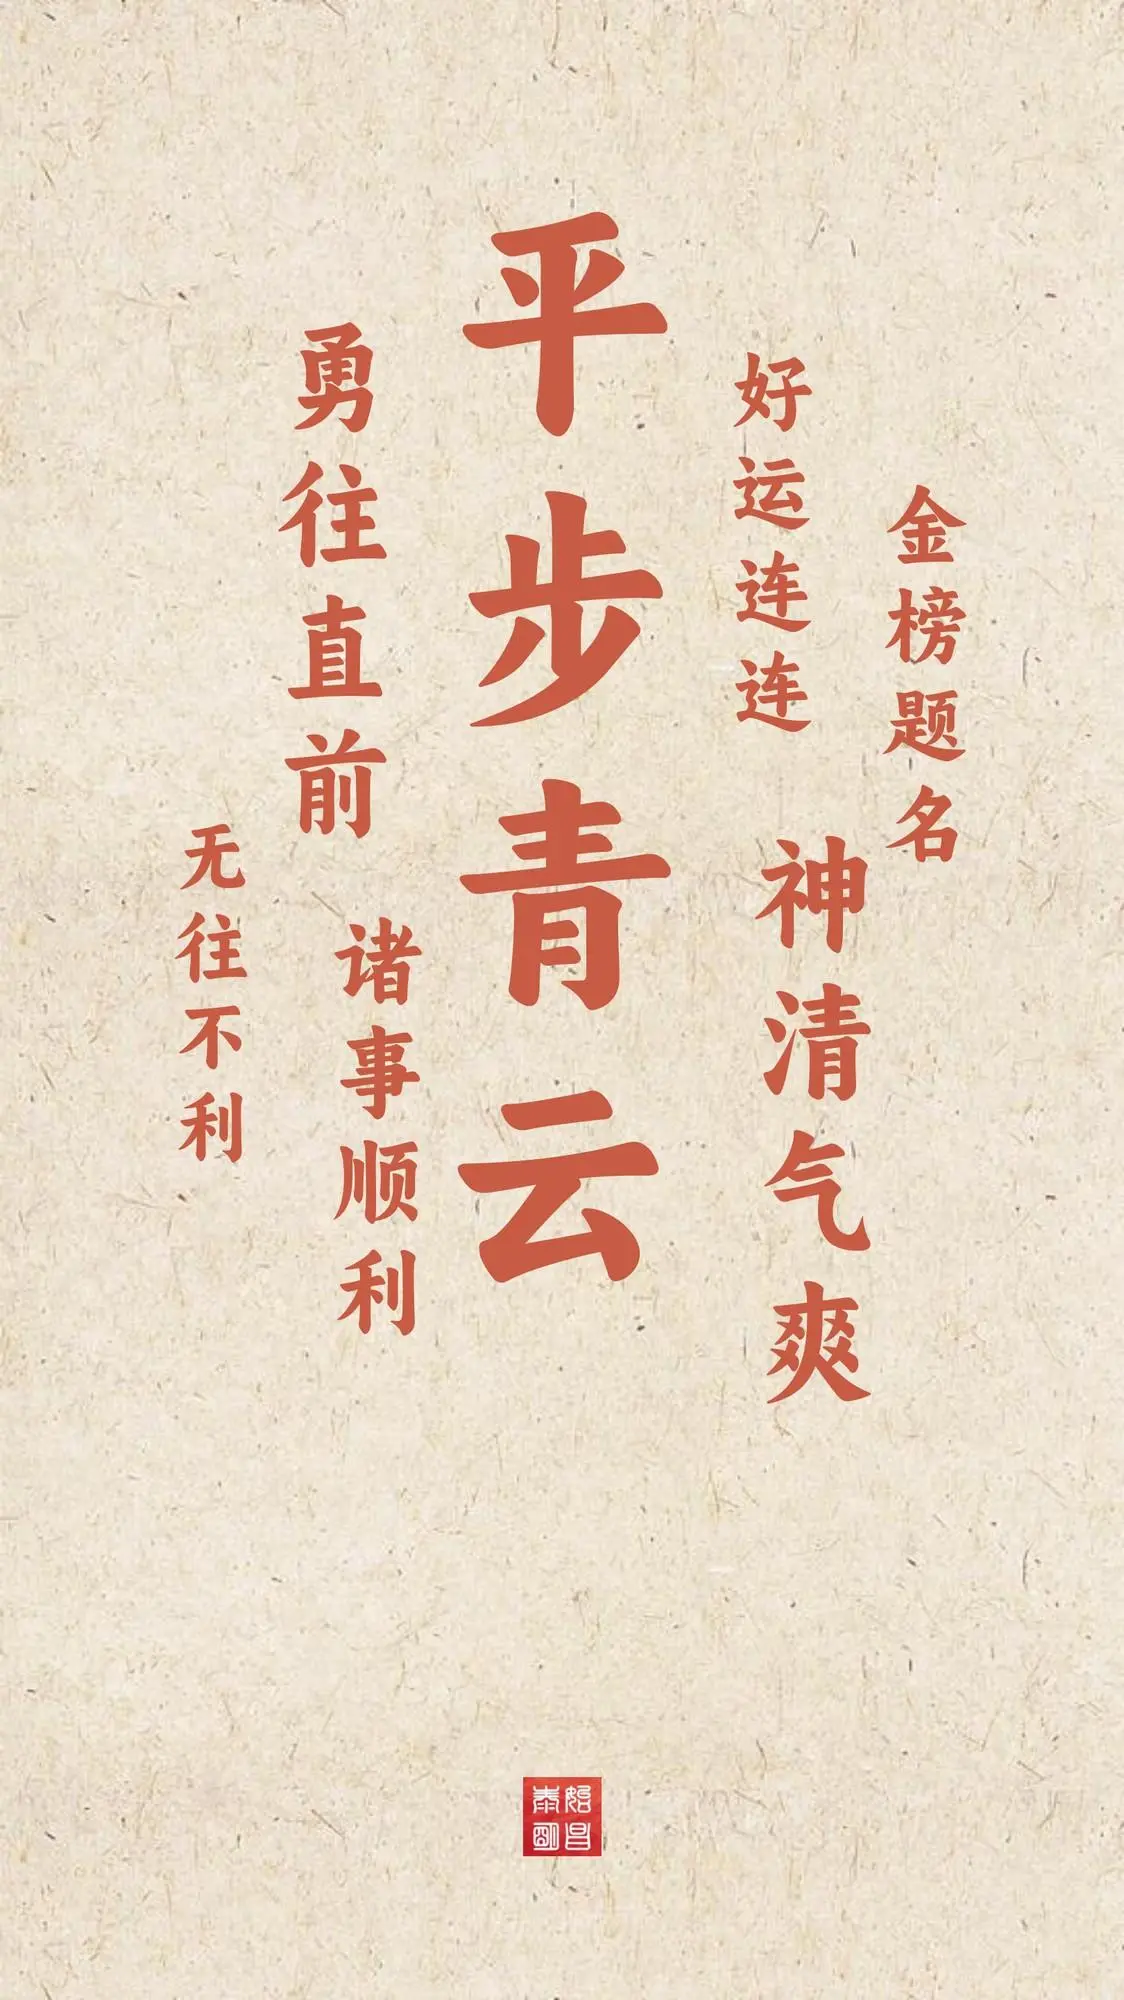 平步青云
勇往直前
好运连连
金榜题名
神清气爽
诸事顺利
无往不利